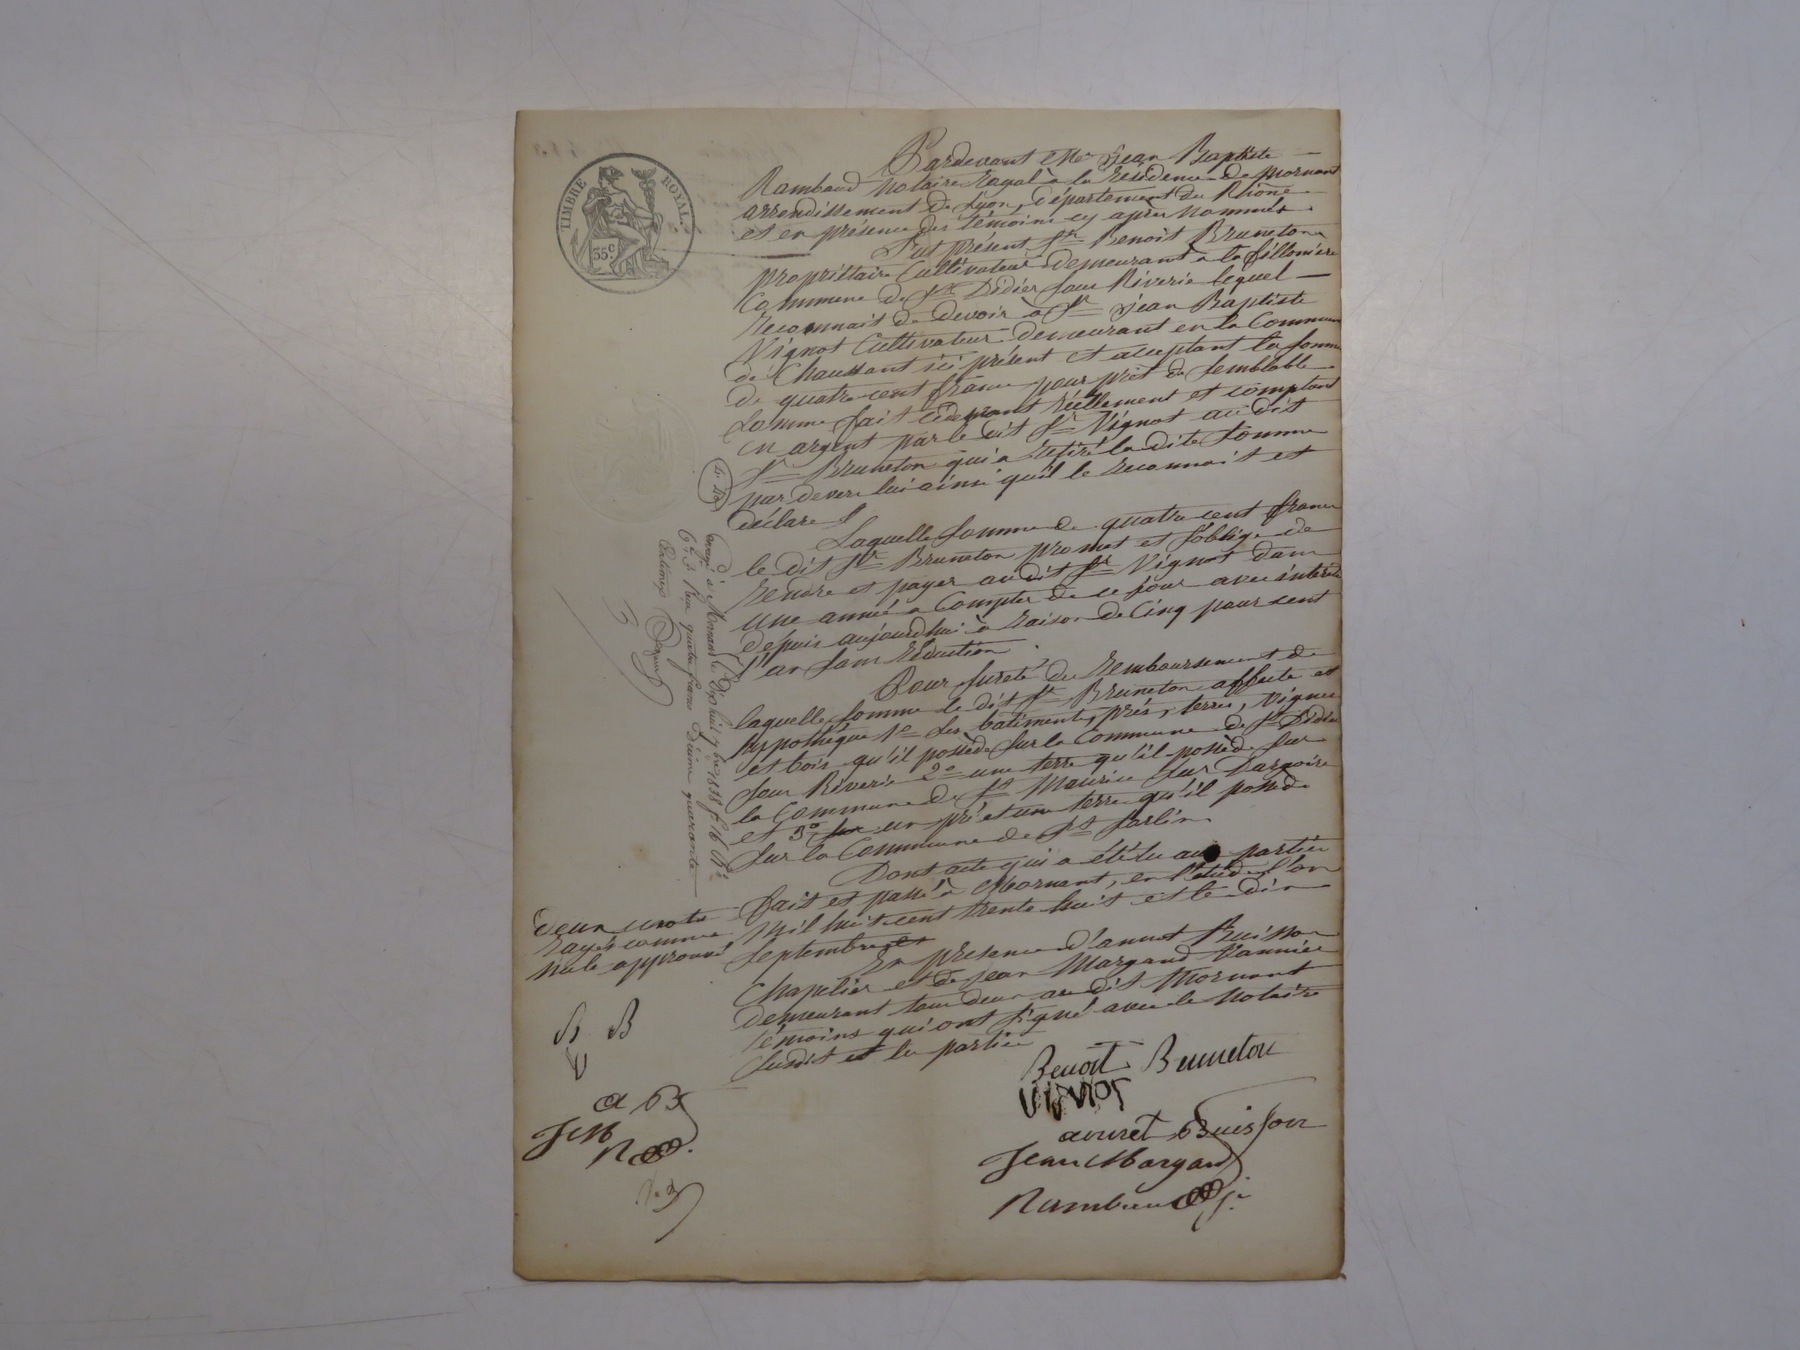 TIMBRE ROYAL
35 c
Pardevant Me Jean Baptiste
Rambaud Notaire Royal à la résidence de Mornant
arrondissement de Lyon, département du Rhône
et en présence des témoins cy après nommés
Fut présent Sr Benoit Bruneton
propriétaire Cultivateur demeurant à la fillonière
Commune de St Didier sous Riverie lequel
reconnait de devoir à Sr Jean Baptiste
Vignot Cultivateur demeurant en la Commune
de Chaussant ici présent et acceptant la somme
de quatre cent francs pour prêt de semblable
somme fait cidevant réellement et comptant
en argent par le dit Sr Vignot au dit
Sr Bruneton qui a retiré la dite somme
par devers lui ainsi qu'il le reconnait et
déclare
Laquelle somme de quatre cent francs
le dit Sr Bruneton promet et s'oblige de
rendre et payer au dit Sr Vignot dans
une année à Compter de ce jour avec intérêts
depuis aujourdhui à raison de Cinq pour cent
l'an sans réduction
Pour sureté du remboursement de
laquelle somme le dit Sr Bruneton affecte et
hypothèque 1o les batiments, prés, terres, vignes
et bois qu'il possède sur la Commune de St Didier
sous Riverie 2o une terre qu'il possède sur
la Commune de St Maurice sur Dargoire
et 3o sur un pré et une terre qu'il possède
sur la Commune de St Sorlin
Dont acte qui a été lu aux parties
fait et passé à Mornant, en l'étude, l'an
mil huit cent trente huit et le dix
Septembre
En présence d'annet Buisson
Chapelier et de Jean Margand Vannier
demeurant tous deux au dit Mornant
témoins qui ont signé avec le Notaire
susdit et les parties
Benoit Bruneton
VIGNOT
annet Buisson
Jean Margand
Rambaud
deux mots
rayés comme
nuls approuvé
B B
V
a B
J M
R
enregé à Mornant le Dix huit 7bre 1838 fo 6 Ro
Co 3 Reçu quatre francs Décime quarante
Centimes